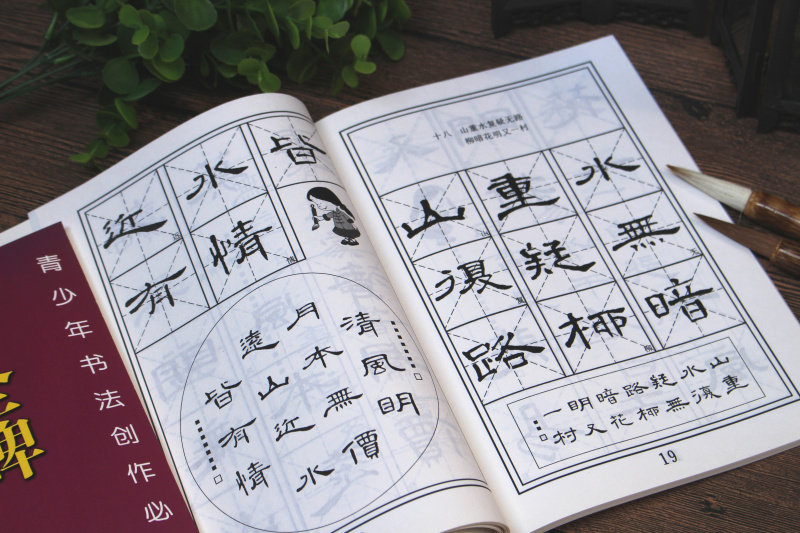 青少年书法创作必
近水皆
有情
清風明
月本無價
遠山近水
皆有情
十八 山重水复疑无路
柳暗花明又一村
山重水
復疑無
路柳暗
山重
水復
疑無
路柳
暗花
明又
一村
19